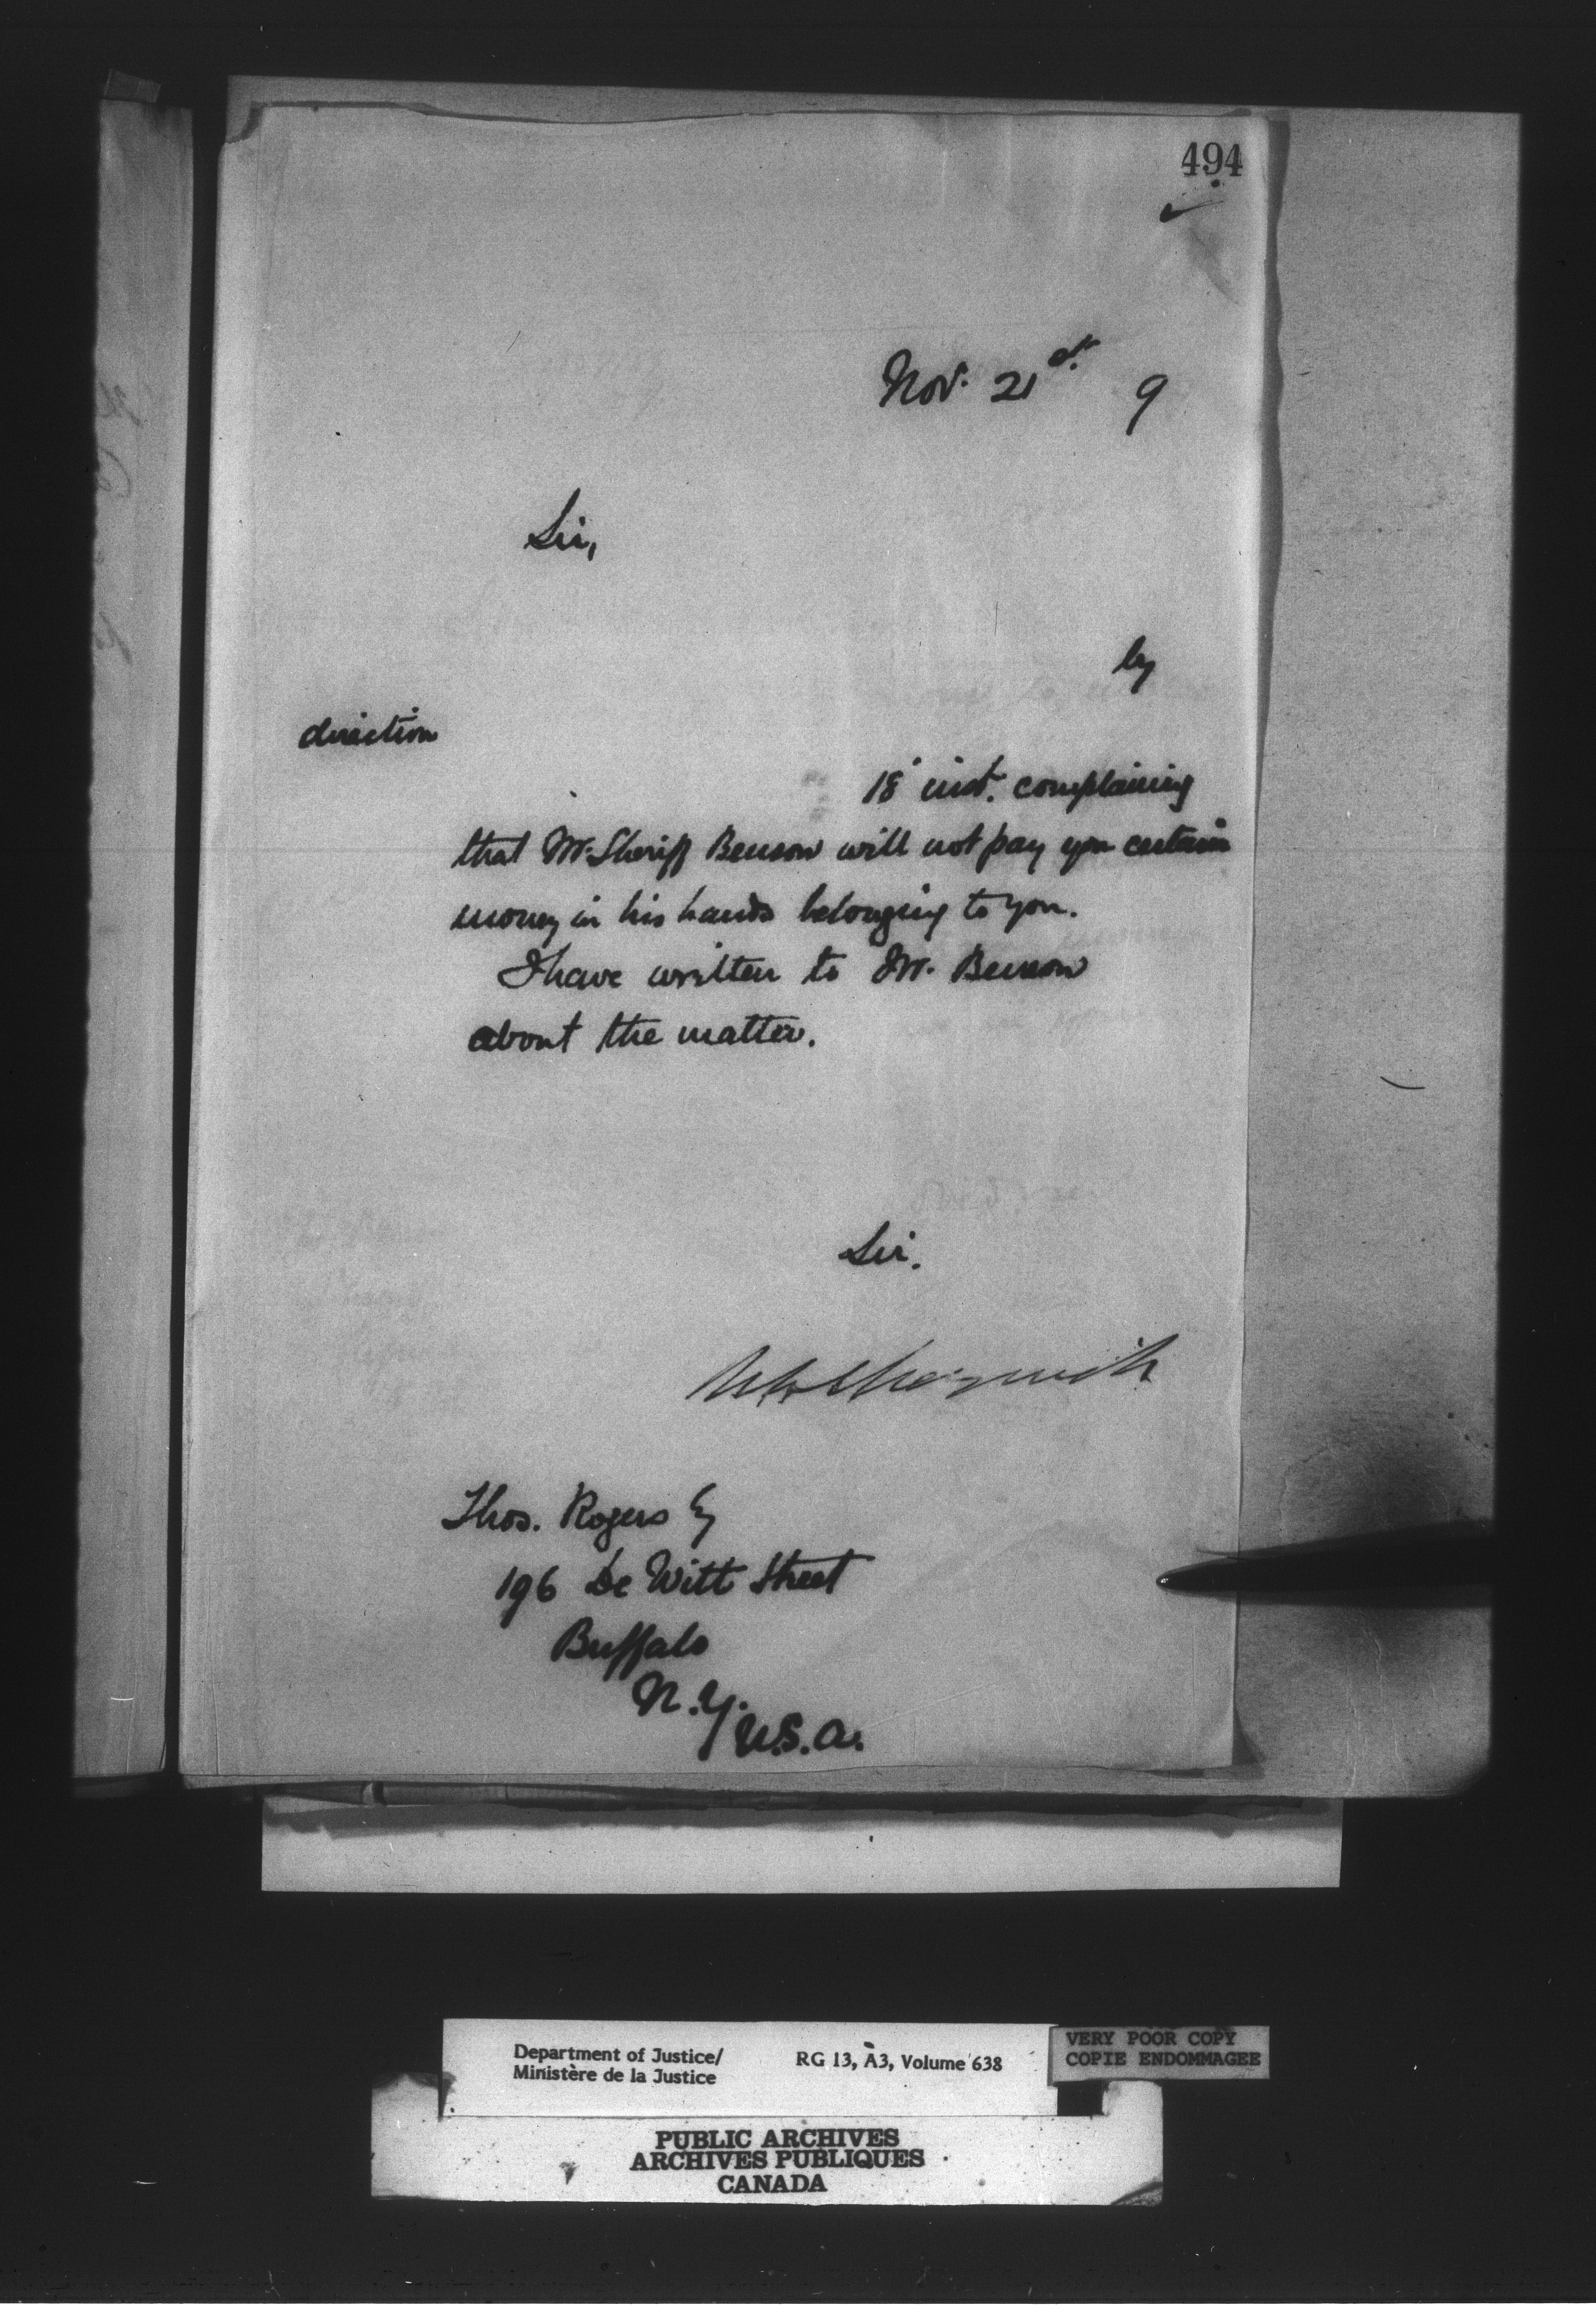 494
Nov. 21st. 9
Sir,
by
direction
18 inst. complaining
that Mr. Sheriff Benson will not pay you certain
money in his hands belonging to you.
I have written to Mr. Benson
about the matter.
Sir.
Thos. Rogers Esq
196 De Witt Street
Buffalo
N.Y.
U.S.A.
Department of Justice/
Ministère de la Justice
RG 13, A3, Volume 638
VERY POOR COPY
COPIE ENDOMMAGEE
PUBLIC ARCHIVES
ARCHIVES PUBLIQUES
CANADA